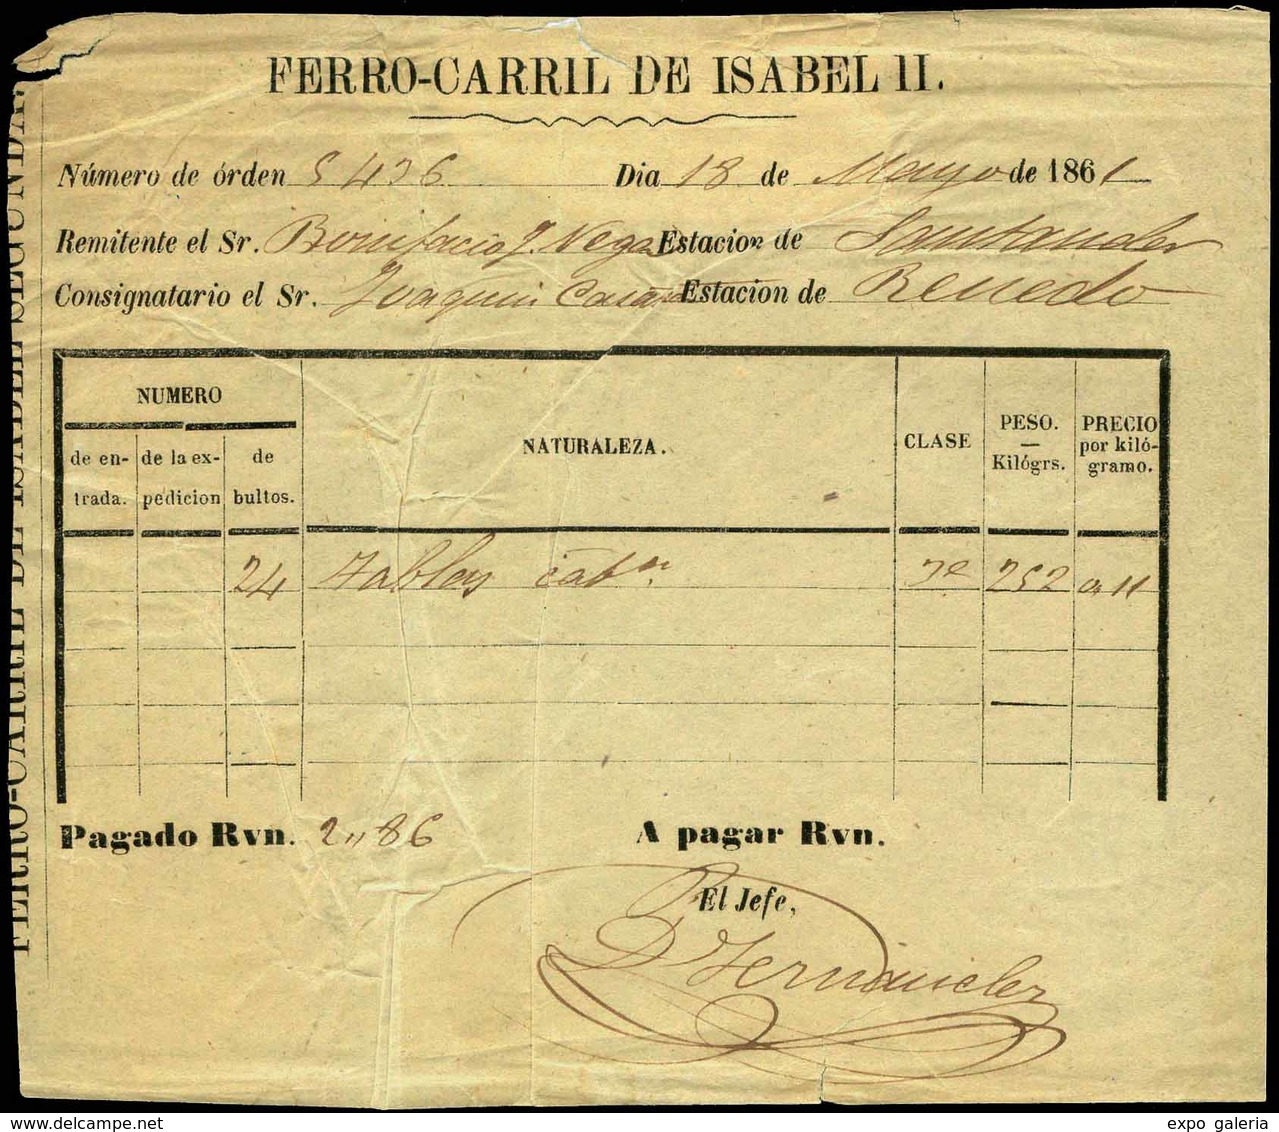 FERRO-CARRIL DE ISABEL II.
Número de órden 5436 Dia 18 de Mayo de 1861
Remitente el Sr. Bonifacio J. Vega Estacion de Santander
Consignatario el Sr. Joaquin Estacion de Renedo
NUMERO
de entrada. de la expedicion de bultos. NATURALEZA. CLASE PESO. — Kilógrs. PRECIO por kilógramo.
24 tablas 3ª 252 0,11
Pagado Rvn. 2,,86 A pagar Rvn.
El Jefe,
Hernandez
FERRO-CARRIL DE ISABEL SEGUNDA
expo galeria